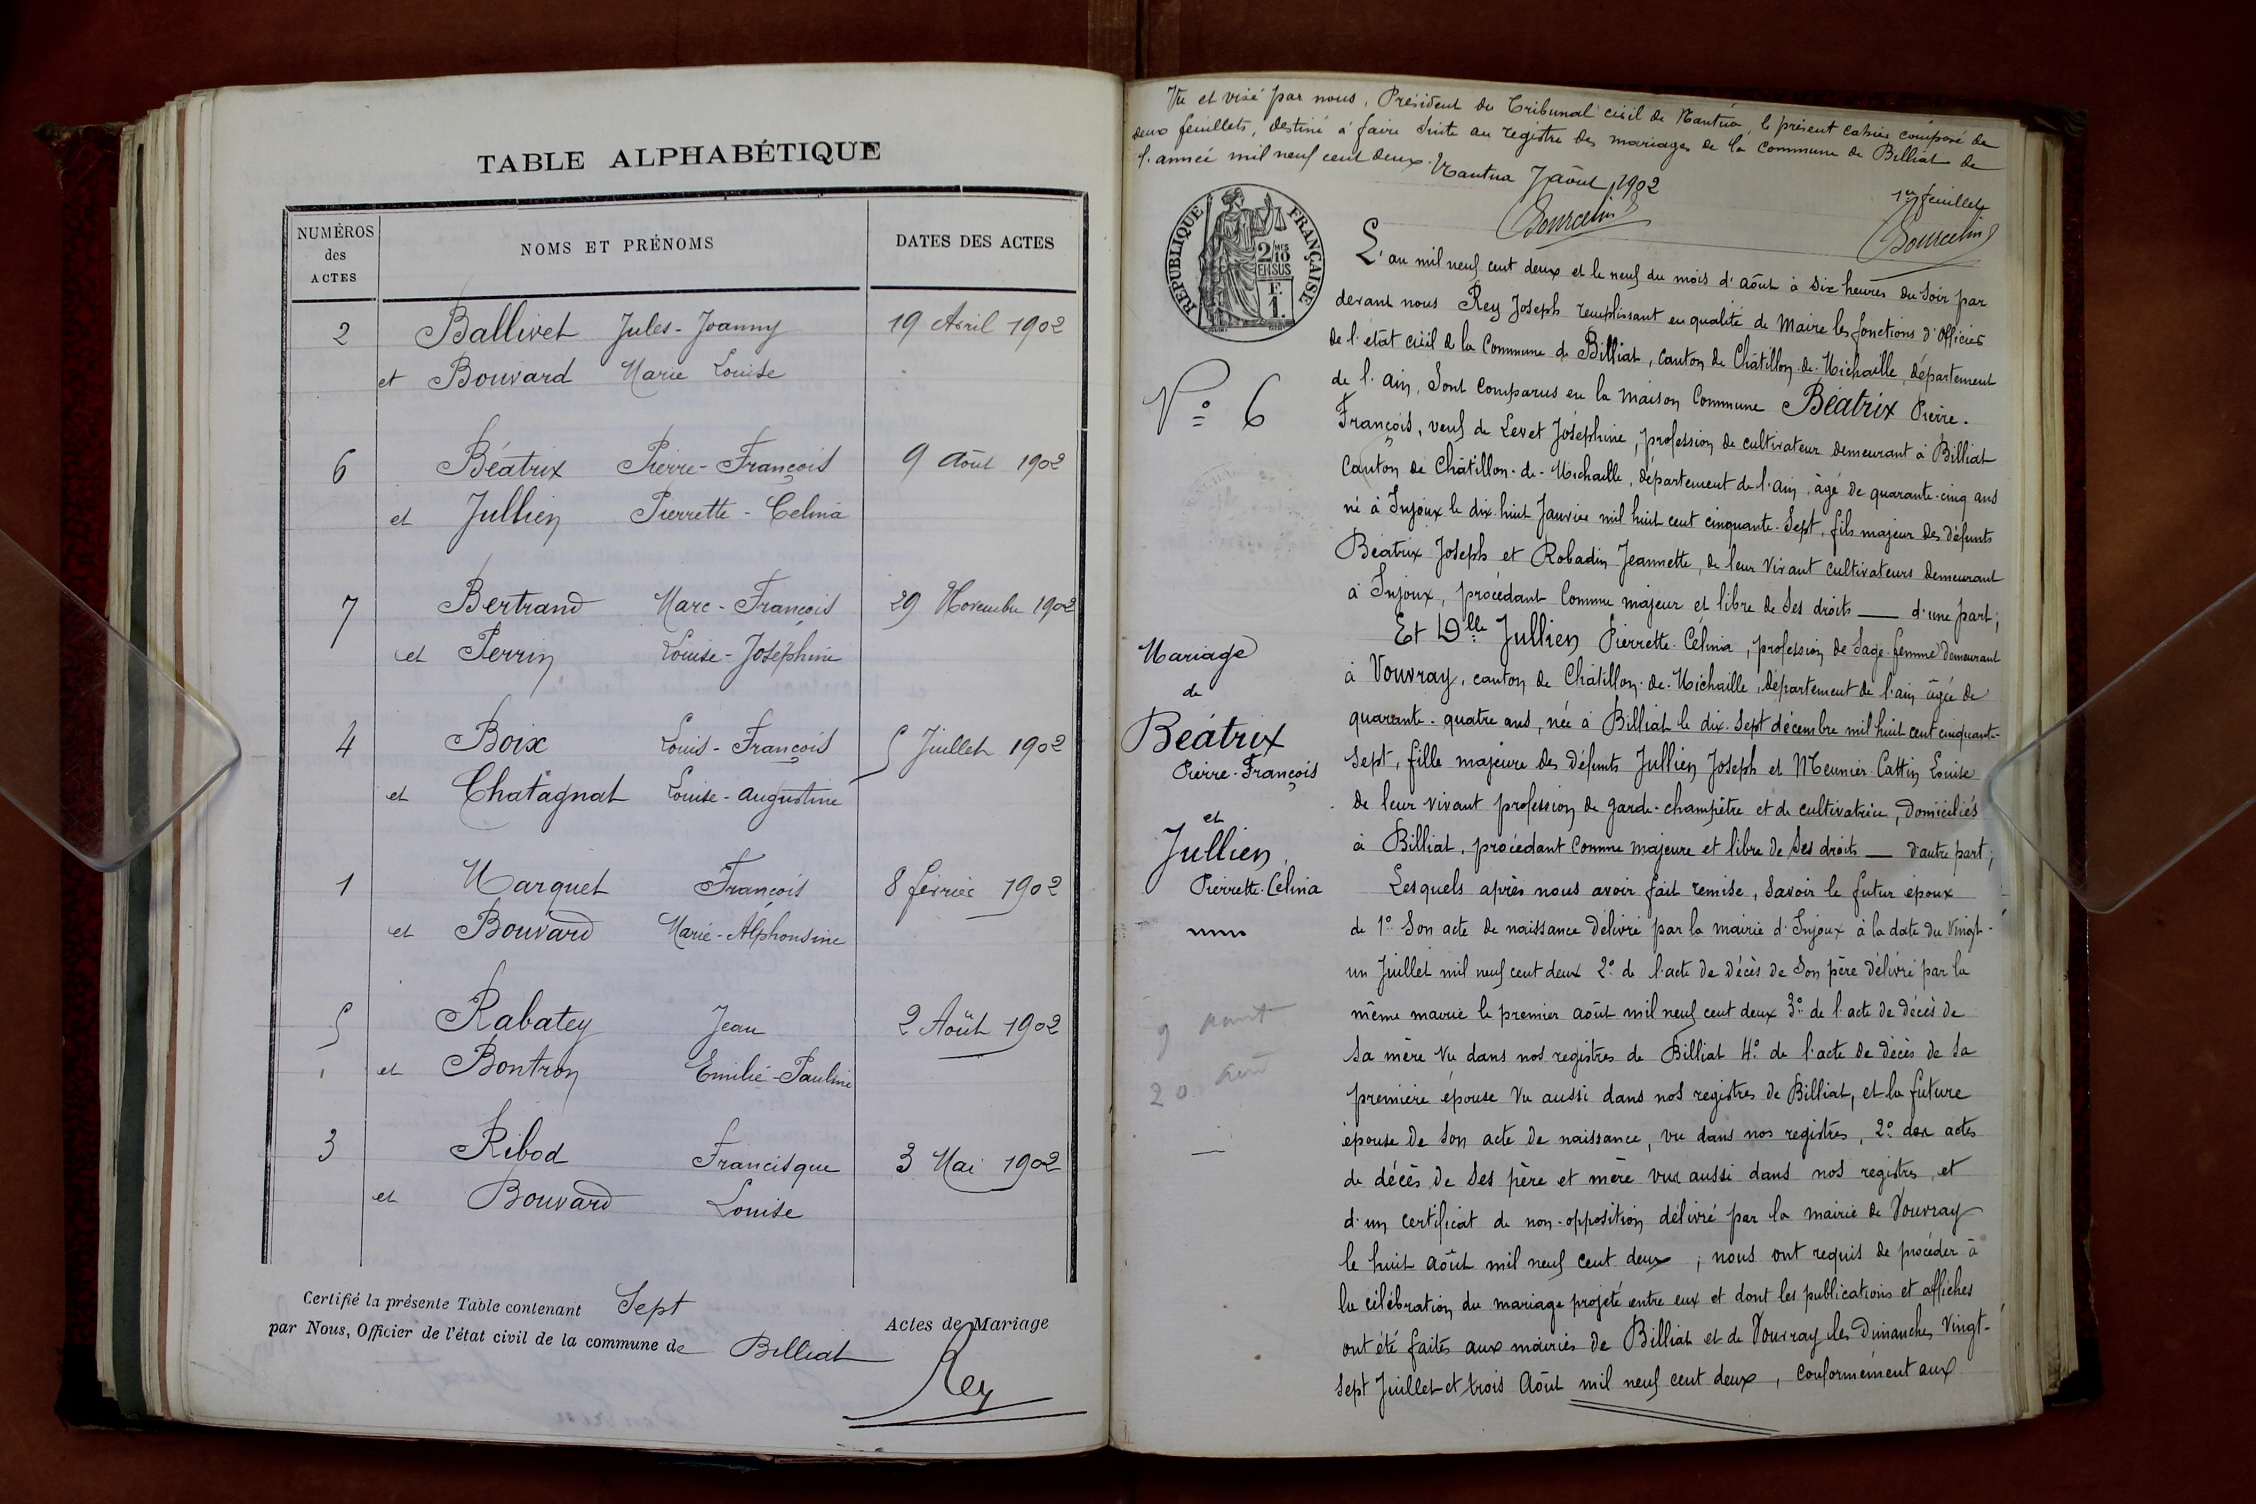 TABLE ALPHABÉTIQUE
NUMÉROS des ACTES
NOMS ET PRÉNOMS
DATES DES ACTES
2 Ballivet Jules-Joanny 19 Avril 1902
et Bouvard Marie Louise
6 Béatrix Pierre-François 9 Août 1902
et Jullien Pierrette-Celina
7 Bertrand Marc-François 29 Novembre 1902
et Perrin Louise-Joséphine
4 Boix Louis-François 5 Juillet 1902
et Chatagnat Louise-Augustine
1 Marquet François 8 février 1902
et Bouvard Marie-Alphonsine
5 Rabatey Jean 2 Août 1902
et Bontron Emilie-Pauline
3 Ribod Francisque 3 Mai 1902
et Bouvard Louise
Certifié la présente Table contenant Sept Actes de Mariage
par Nous, Officier de l'état civil de la commune de Billiat
Rey
Vu et visé par nous, Président du Tribunal civil de Nantua, le présent cahier composé de
deux feuillets, destiné à faire suite au registre des mariages de la commune de Billiat de
l'année mil neuf cent deux. Nantua 7 août 1902
1er feuillet
Bourcelin
Bourcelin
RÉPUBLIQUE FRANÇAISE
2/10 MES
EN SUS
F.
1.
N° 6
Mariage
de
Béatrix
Pierre-François
et
Jullien
Pierrette-Célina
L'an mil neuf cent deux et le neuf du mois d'août à six heures du soir par
devant nous Rey Joseph remplissant en qualité de Maire les fonctions d'officier
de l'état civil de la Commune de Billiat, canton de Châtillon-de-Michaille, département
de l'ain, sont comparus en la maison Commune Béatrix Pierre-
François, veuf de Levet Joséphine, profession de cultivateur demeurant à Billiat
Canton de Châtillon-de-Michaille, département de l'ain, âgé de quarante-cinq ans
né à Injoux le dix-huit Janvier mil huit cent cinquante-sept, fils majeur des défunts
Béatrix Joseph et Robadin Jeannette, de leur vivant cultivateurs demeurant
à Injoux, procédant Comme majeur et libre de ses droits — d'une part;
Et Dlle Jullien Pierrette-Célina, profession de sage-femme demeurant
à Vouvray, canton de Châtillon-de-Michaille, département de l'ain âgée de
quarante-quatre ans, née à Billiat le dix-sept décembre mil huit cent cinquante-
sept, fille majeure des défunts Jullien Joseph et Meunier-Cattin Louise
de leur vivant profession de garde-champêtre et de cultivatrice, domiciliés
à Billiat, procédant Comme majeure et libre de ses droits — d'autre part;
Lesquels après nous avoir fait remise, savoir le futur époux
de 1° son acte de naissance délivré par la mairie d'Injoux à la date du vingt-
un Juillet mil neuf cent deux 2° de l'acte de décès de son père délivré par la
même mairie le premier août mil neuf cent deux 3° de l'acte de décès de
sa mère vu dans nos registres de Billiat 4° de l'acte de décès de sa
première épouse vu aussi dans nos registres de Billiat, et la future
épouse de son acte de naissance, vu dans nos registres, 2° des actes
de décès de ses père et mère vus aussi dans nos registres, et
d'un certificat de non-opposition délivré par la mairie de Vouvray
le huit août mil neuf cent deux ; nous ont requis de procéder à
la célébration du mariage projeté entre eux et dont les publications et affiches
ont été faites aux mairies de Billiat et de Vouvray les Dimanches vingt-
sept Juillet et trois Août mil neuf cent deux, conformément aux